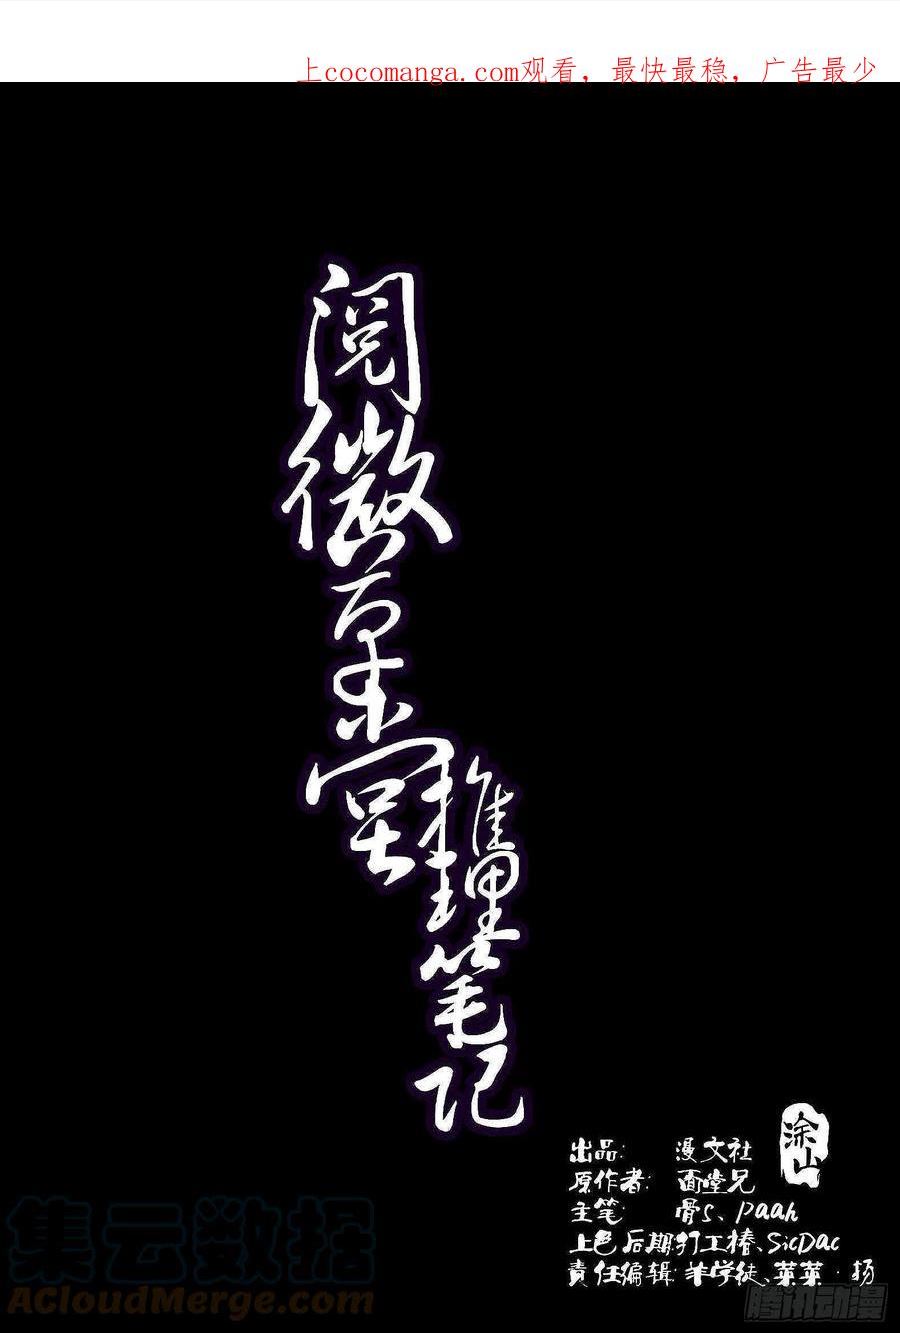 上cocomanga.com观看，最快最稳，广告最少
阅微草堂
推理笔记
涂山
出品: 漫文社
原作者: 面堂兄
主笔: 骨S、Paah
上色后期:打工椿、SicDac
責任编辑:羊学徒、菜菜·扬
集云数据
ACloudMerge.com
腾讯动漫